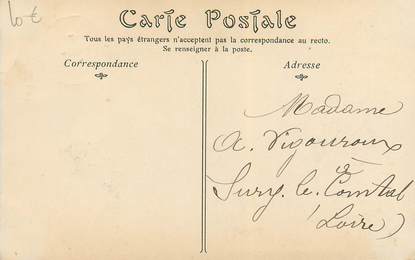 10 €
Carte Postale
Tous les pays étrangers n'acceptent pas la correspondance au recto.
Se renseigner à la poste.
Correspondance
Adresse
Madame
A. Vigouroux
à
Sury-le-Comtal
(Loire)